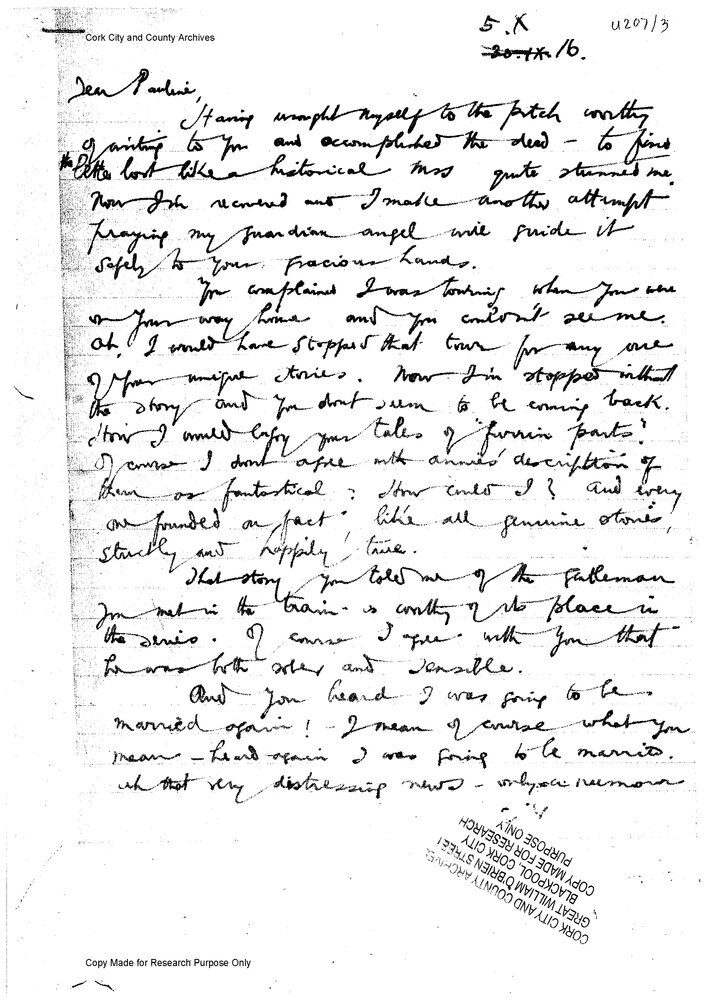 Cork City and County Archives
U207/3
5.X
20.IX.16.
Dear Pauline,
Having wrought myself to the pitch worthy
of writing to you and accomplished the deed – to find
the letter lost like a historical mss quite stunned me.
Now I'm recovered and I make another attempt
praying my guardian angel will guide it
safely to your gracious hands.
You complained I was touring when you were
on your way home and you couldn't see me.
Oh, I would have stopped that tour for any one
of your unique stories. Now I'm stopped without
the story and you don't seem to be coming back.
How I would enjoy your tales of "furrin parts".
Of course I don't agree with annies' description of
them as fantastical: How could I? And every
one founded on fact, like all genuine stories,
strictly and happily true.
That story you told me of the gentleman
you met in the train is worthy of its place in
the series. Of course I agree with you that
he was both sober and sensible.
And you heard I was going to be
married again! – I mean of course what you
mean – heard again I was going to be married.
that very distressing news – only a rumour
CORK CITY AND COUNTY ARCHIVES
GREAT WILLIAM O'BRIEN STREET
BLACKPOOL, CORK CITY
COPY MADE FOR RESEARCH
PURPOSE ONLY
Copy Made for Research Purpose Only